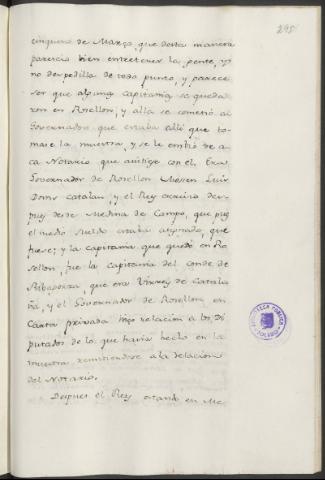 295
cinquena de Março, que desta manera
parescia bien entretener la gente, y
no despedilla de todo punto, y parece
ser que alguna capitania se queda
ron en Rosellon, y alla se cometió al
Governador que estaba alli que to
mase la muestra, y se le embió de a
ca Notario que asistiese con el. Era
Governador de Rosellon Mosen Luis
Doms catalan, y el Rey escrivia des
pues desde Medina de Campo, que pues
el medio sueldo estaba asignado, que
fuese; y la capitania que quedó en Ro
sellon, fue la capitania del conde de
Ribagorza, que era Virrey de Catalu
ña, y el Governador de Rosellon en
Carta privada hizo relacion a los Di
putados de lo que havia hecho en la
muestra, remitiendose a la relacion
del Notario.
Despues el Rey estando en Me
BIBLIOTECA PUBLICA
TOLEDO